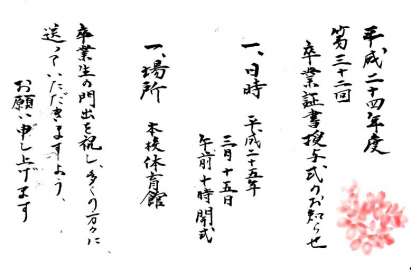 平成二十四年度
第三十二回
卒業証書授与式のお知らせ
一、日時 平成二十五年
三月十五日
午前十時開式
一、場所 本校体育館
卒業生の門出を祝し、多くの方々に
送っていただきますよう、
お願い申し上げます